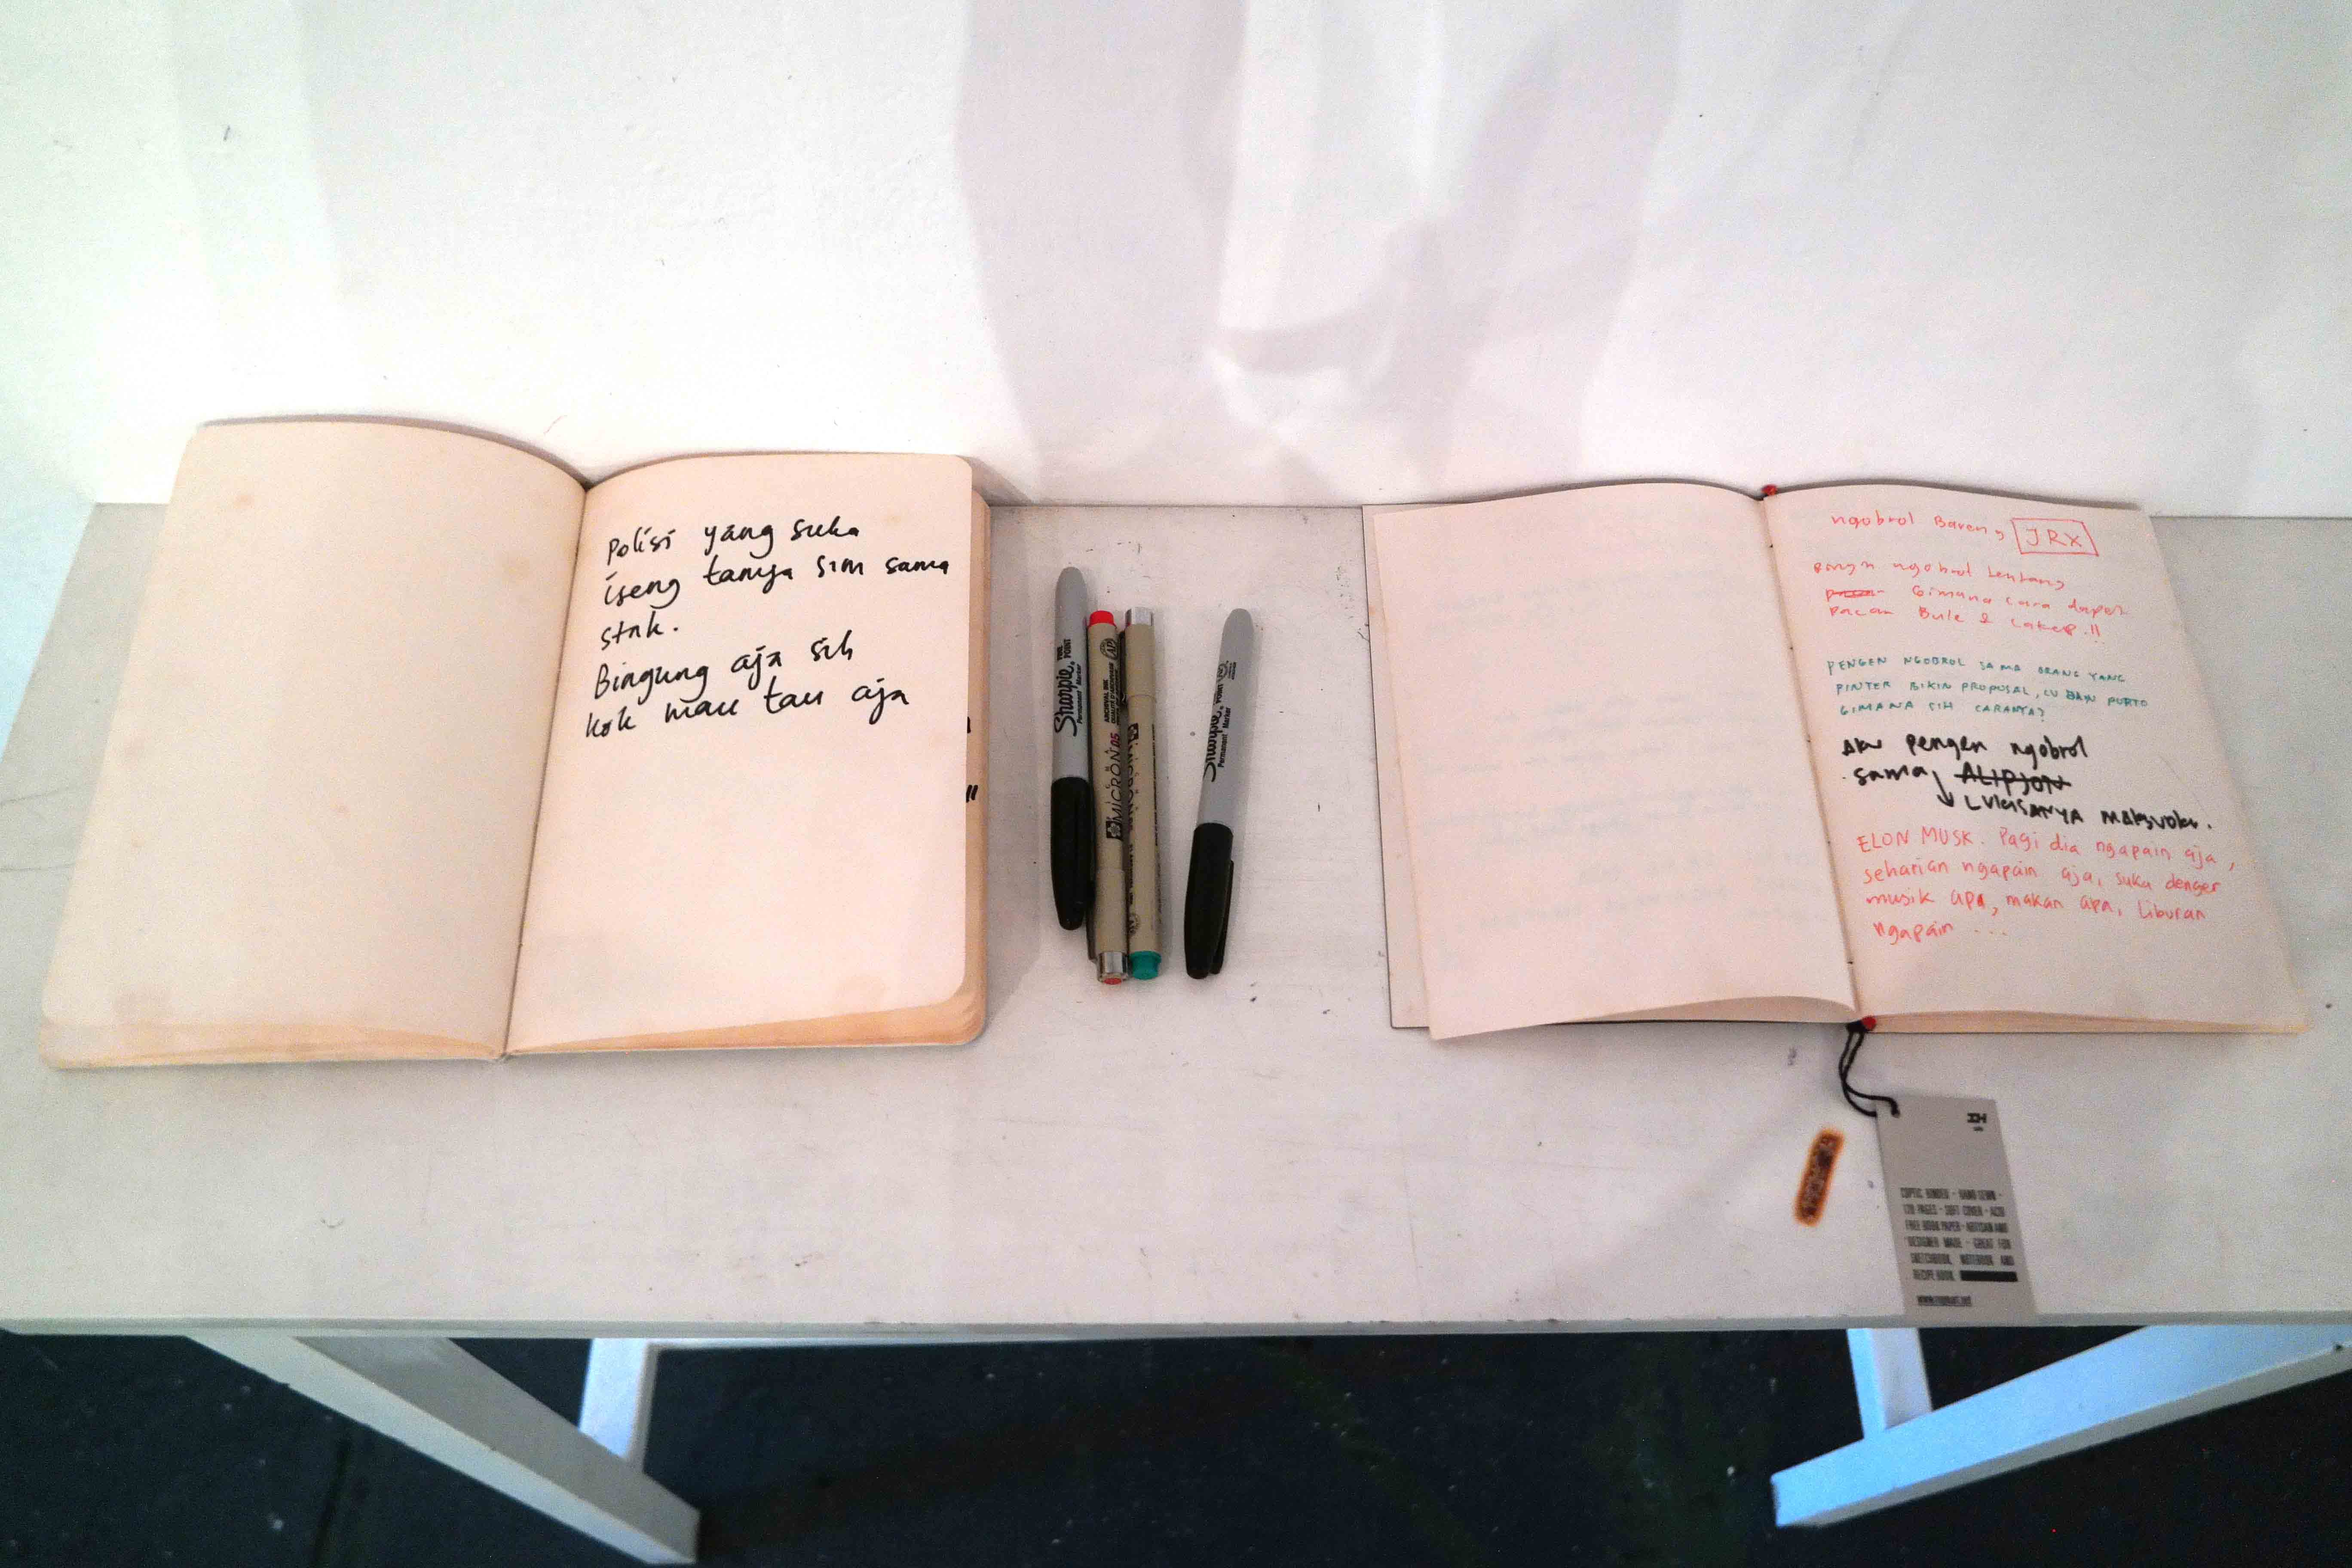 polisi yang suka
iseng tanya sim sama
stnk.
Bingung aja sih
kok mau tau aja
Sharpie
FINE POINT
Permanent Marker
MICRON 05
ARCHIVAL INK
Sharpie
Permanent Marker
ngobrol Bareng JRX
pengn ngobrol tentang
Gimana cara dapet
pacar Bule & cakep.!!
PENGEN NGOBROL SAMA ORANG YANG
PINTER BIKIN PROPOSAL, CV DAN PORTO
GIMANA SIH CARANYA?
Aku pengen ngobrol
sama ALIPJON
ELON MUSK. Pagi dia ngapain aja,
seharian ngapain aja, suka denger
musik apa, makan apa, liburan
ngapain ...
COPTIC BINDED - HAND SEWN -
120 PAGES - SOFT COVER - ACID
FREE BOOK PAPER - ARTISAN AND
DESIGNER MADE - GREAT FOR
SKETCHBOOK, NOTEBOOK AND
RECIPE BOOK